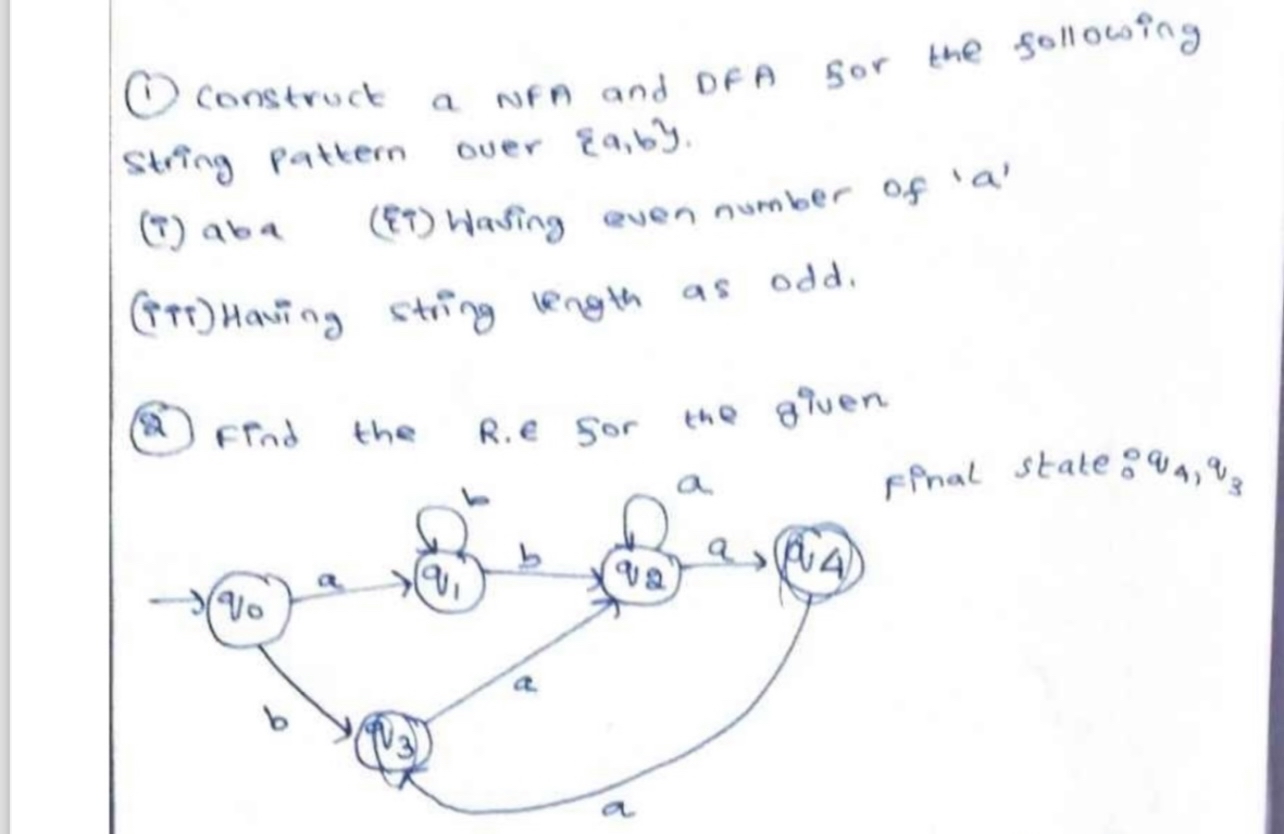 ① Construct a NFA and DFA for the following
String pattern over {a,b}.
(i) aba (ii) Having even number of 'a'
(iii) Having string length as odd.
② Find the R.E for the given
Final state: q4, q3
b a
→ q0 a q1 b q2 a q4
b a
q3
a